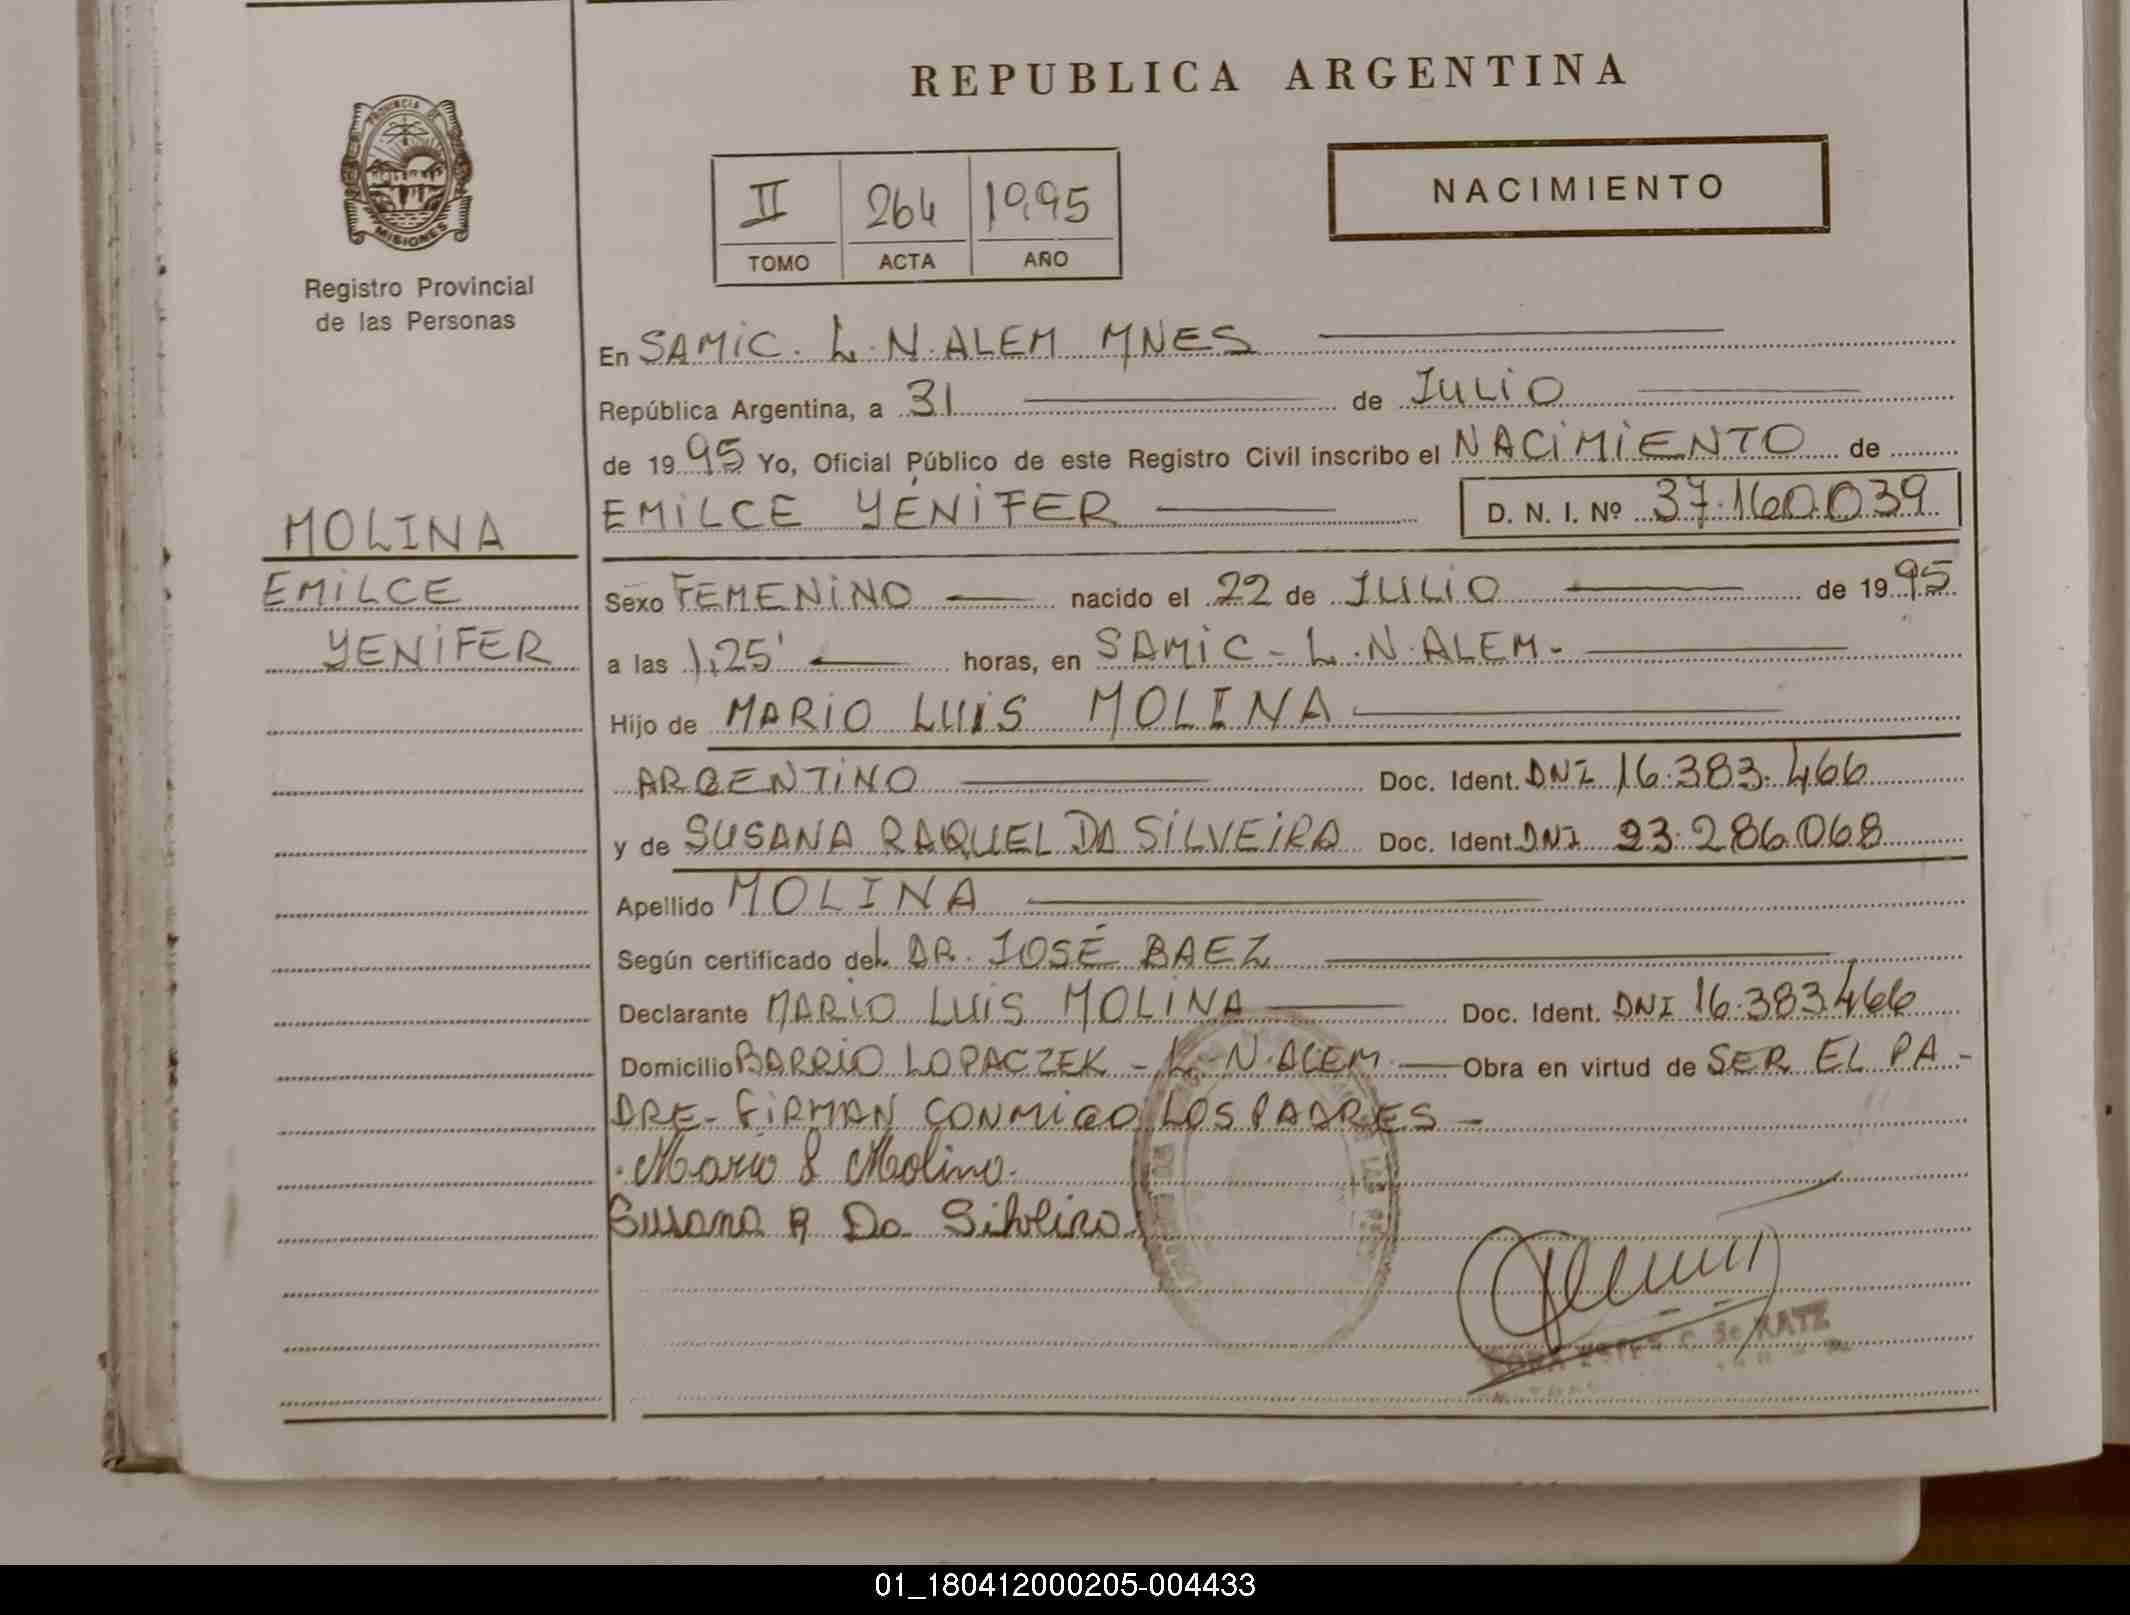 REPUBLICA ARGENTINA
PROVINCIA DE
MISIONES
Registro Provincial
de las Personas
NACIMIENTO
II 264 1995
TOMO ACTA AÑO
En SAMIC. L.N.ALEM MNES
República Argentina, a 31 de JULIO
de 1995 Yo, Oficial Público de este Registro Civil inscribo el NACIMIENTO de
EMILCE YÉNIFER D. N. I. Nº 37.160.039
MOLINA
EMILCE
YENIFER
Sexo FEMENINO nacido el 22 de JULIO de 1995
a las 1,25' horas, en SAMIC - L.N.ALEM.
Hijo de MARIO LUIS MOLINA
ARGENTINO Doc. Ident. DNI 16.383.466
y de SUSANA RAQUEL DA SILVEIRA Doc. Ident. DNI 23.286.068
Apellido MOLINA
Según certificado del DR. JOSÉ BAEZ
Declarante MARIO LUIS MOLINA Doc. Ident. DNI 16.383.466
Domicilio BARRIO LOPACZEK - L.N.ALEM Obra en virtud de SER EL PA-
DRE- FIRMAN CONMIGO LOS PADRES -
Mario L Molina.
Susana R Da Silveira
C. de KATZ
01_180412000205-004433